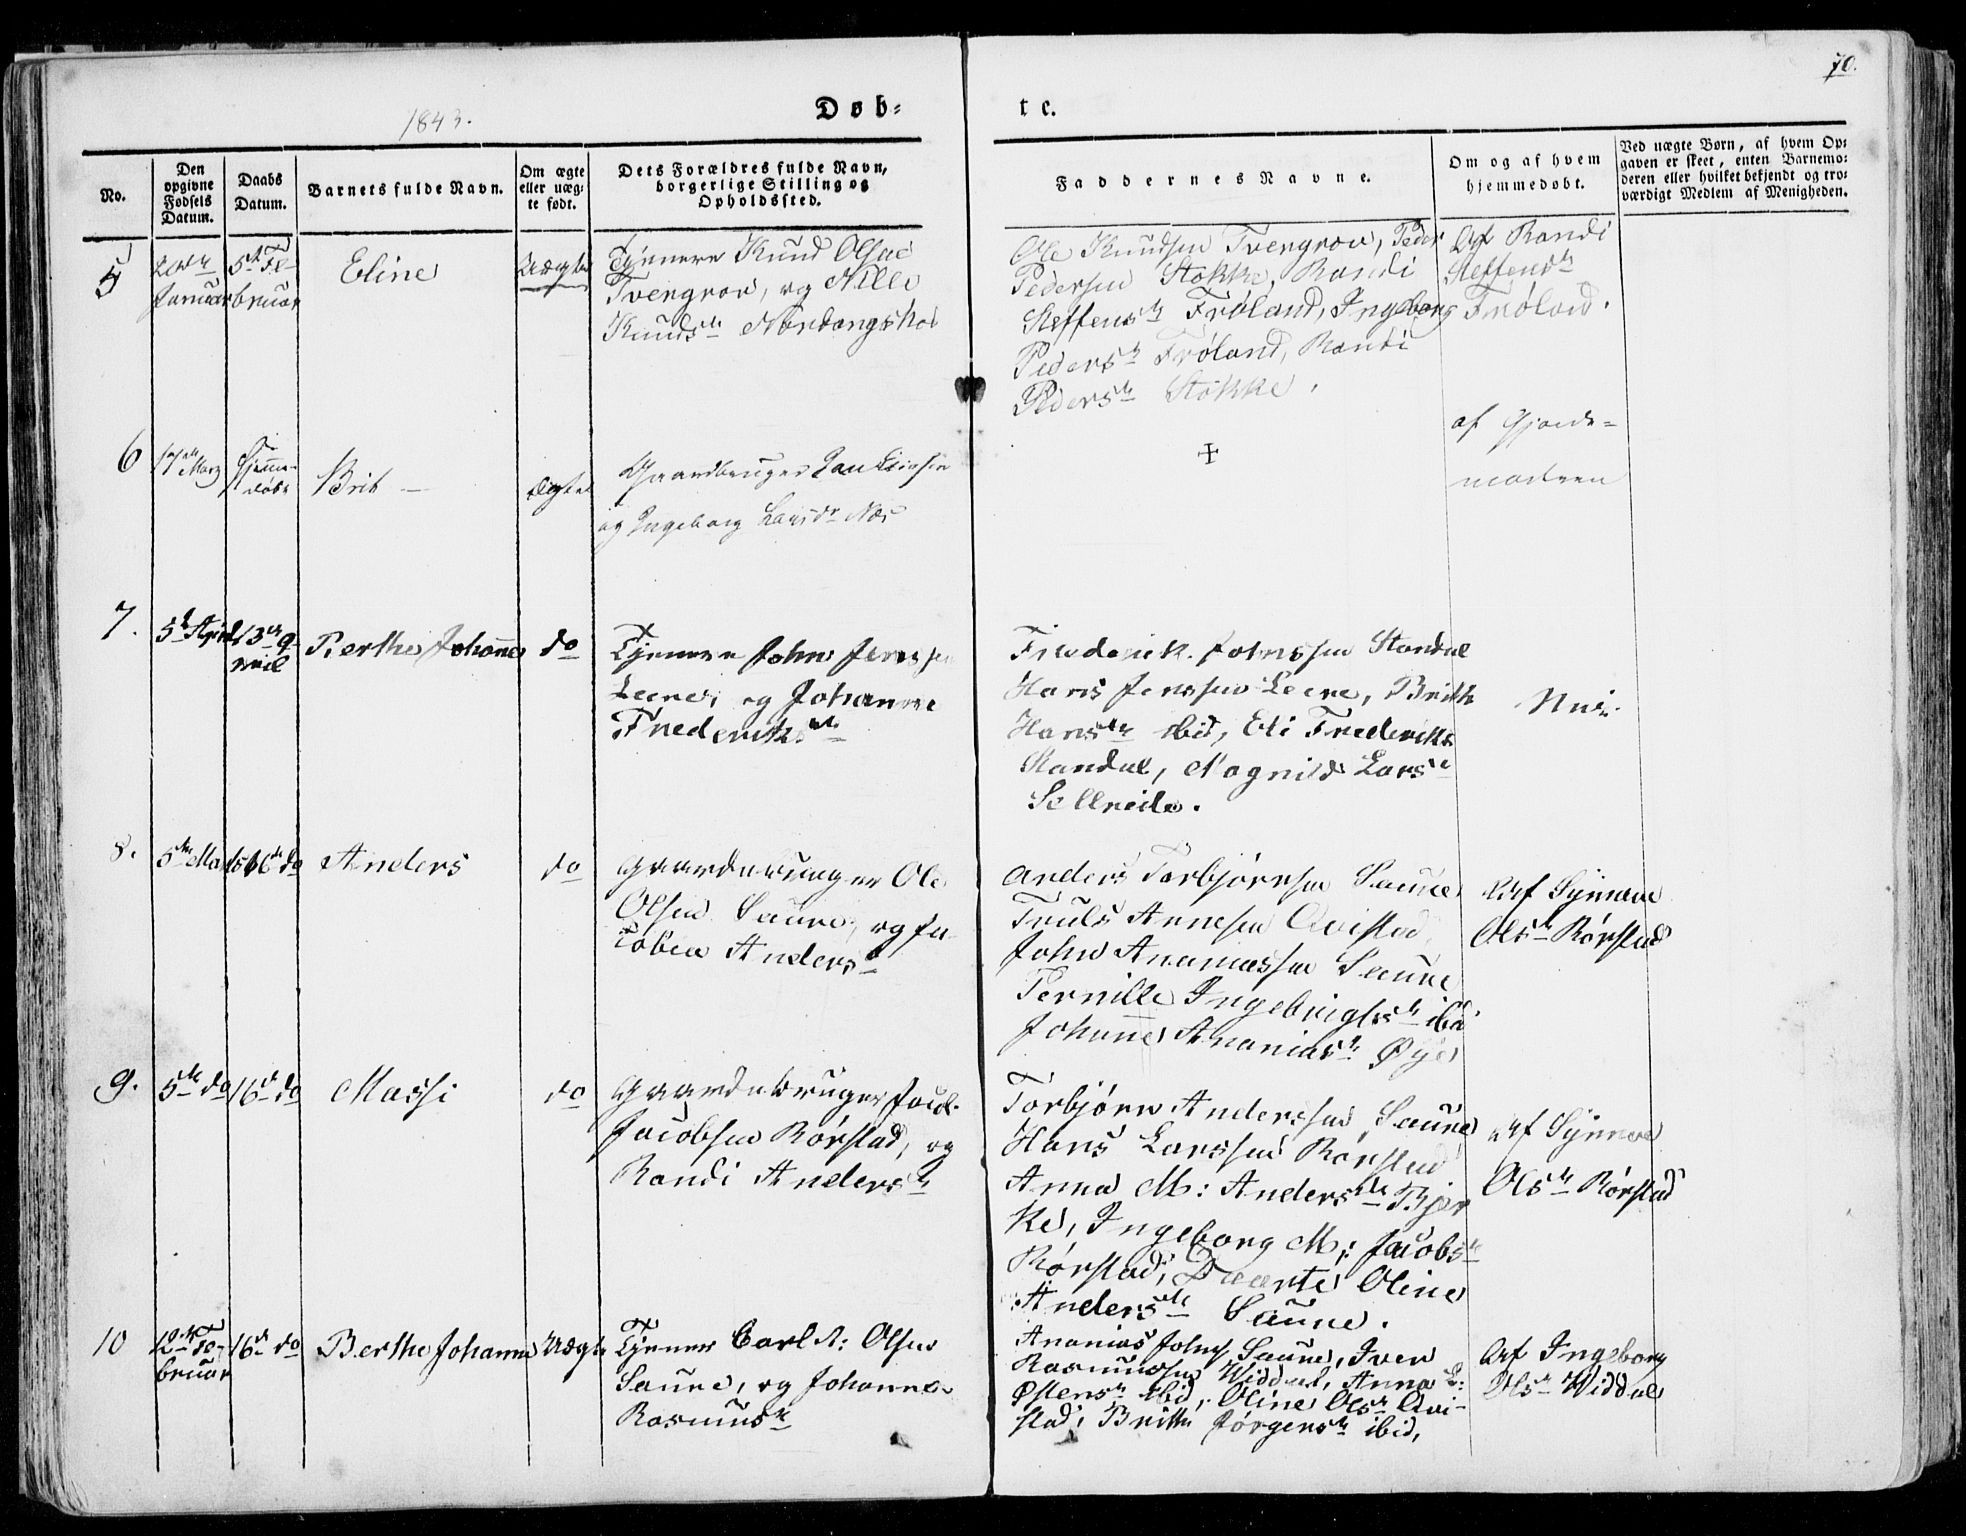 70.
1843.
Døb=
te.
No.
Den opgivne Fødsels Datum.
Daabs Datum.
Barnets fulde Navn.
Om ægte eller uæg= te født.
Dets Forældres fulde Navn, borgerlige Stilling og Opholdssted.
Faddernes Navne.
Om og af hvem hjemmedøbt.
Ved uægte Børn, af hvem Op= gaven er skeet, enten Barnemo= deren eller hvilket bekjendt og tro= værdigt Medlem af Menigheden.
5
Januar
5te Fe-
bruar
Eline
Uægte
Tjenere Knud Olsen
Tvergrov, og Nille
Knudsdr Nordangs
Ole Knudsen Tvergrov, Peder
Pedersen Stokke, Randi
Steffensdr Frøland, Ingeborg
Pedersdr Frøland, Randi
Pedersdr Stokke.
Af Randi
Steffensdr
Frøland.
6
17de Marz
Hjemme-
døbt
Brit —
Ægte
Gaardbruger
og Ingeborg Larsdr Næs
+
af Gjorde=
moderen
7.
5te April
13de A-
pril
Berthe Johanne
do
Tjenere John Jenssen
Leere, og Johanne
Frederiksdr
Frederik Johnssen Standal
Hans Jenssen Leere, Brith
Hansdr ibid, Eli Frederiks
Standal, Ragnild Larsdr
Sellreite.
Nei.
8.
5te Marts
16de do
Anders
do
Gaardebruger Ole
Olsen Saure, og Ja-
cobia Andersdr
Anders Torbjørnsen Saure
Truls Arnesen Qvistad
John Ananiassen Saure
Pernille Ingebrigtsdr ibid
Johanne Ananiasdr Øye
Af Synnøve
Olsdr Rørstad
9.
5te do
16de do
Massi
do
Gaardebruger Jacob
Jacobsen Rørstad, og
Randi Andersdr
Torbjørn Anderssen Saure
Hans Larssen Rørstad
Anna M: Andersdr Bjer
ke, Ingeborg M: Jacobsdr
Rørstad, Daarte Oline
Andersdr Saure.
Af Synnøve
Olsdr Rørstad
10
12te Fe-
bruar
16de do
Berthe Johanne
Uægte
Tjener Carl A: Olsen
Saure, og Johanne
Rasmusdr
Ananias Johns. Saure, Iver
Rasmussen Widdal, Anna L:
Østensdr ibid, Oline Olsdr Qvi-
stad, Brithe Jørgensdr ibid,
Af Ingeborg
Olsdr Widdal